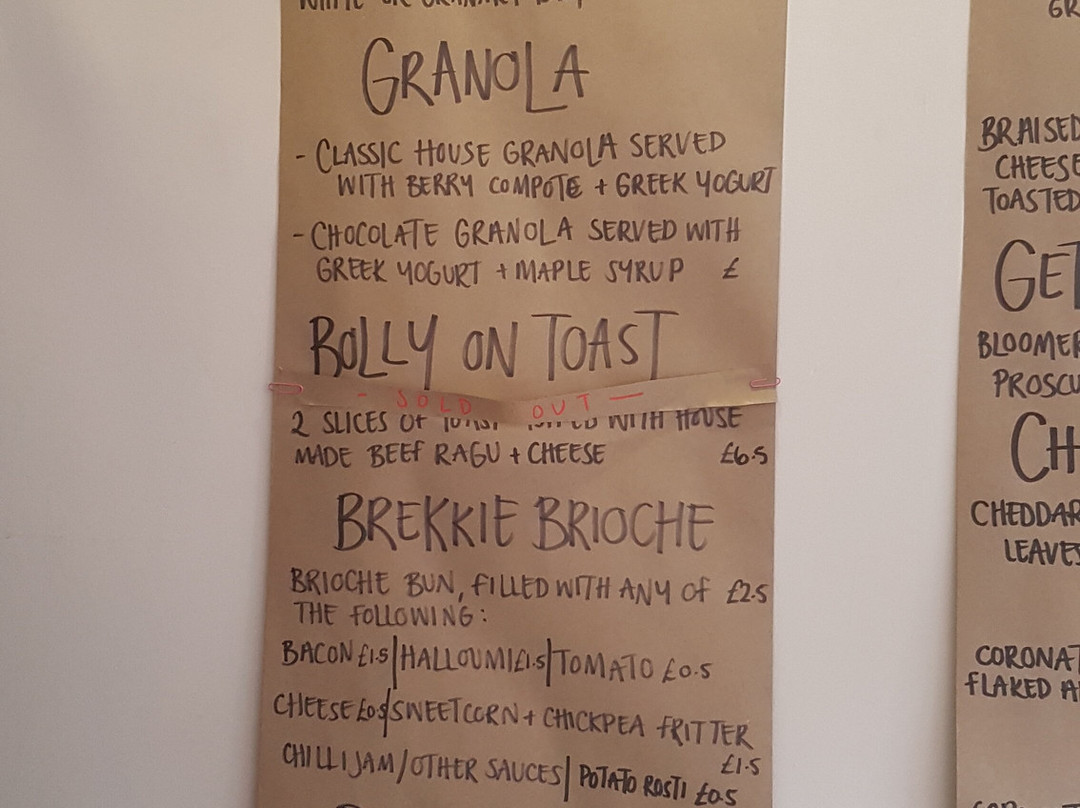 GRANOLA
- CLASSIC HOUSE GRANOLA SERVED
WITH BERRY COMPOTE + GREEK YOGURT
- CHOCOLATE GRANOLA SERVED WITH
GREEK YOGURT + MAPLE SYRUP £
BOLLY ON TOAST
- SOLD OUT -
2 SLICES OF TOAST WITH HOUSE
MADE BEEF RAGU + CHEESE £6.5
BREKKIE BRIOCHE
BRIOCHE BUN, FILLED WITH ANY OF £2.5
THE FOLLOWING:
BACON £1.5|HALLOUMI £1.5|TOMATO £0.5
CHEESE £0.5|SWEETCORN + CHICKPEA FRITTER
£1.5
CHILLI JAM/OTHER SAUCES| POTATO ROSTI £0.5
BRAISED
CHEESE
TOASTED
GET
BLOOMER
CH
CHEDDAR
LEAVES
FLAKED